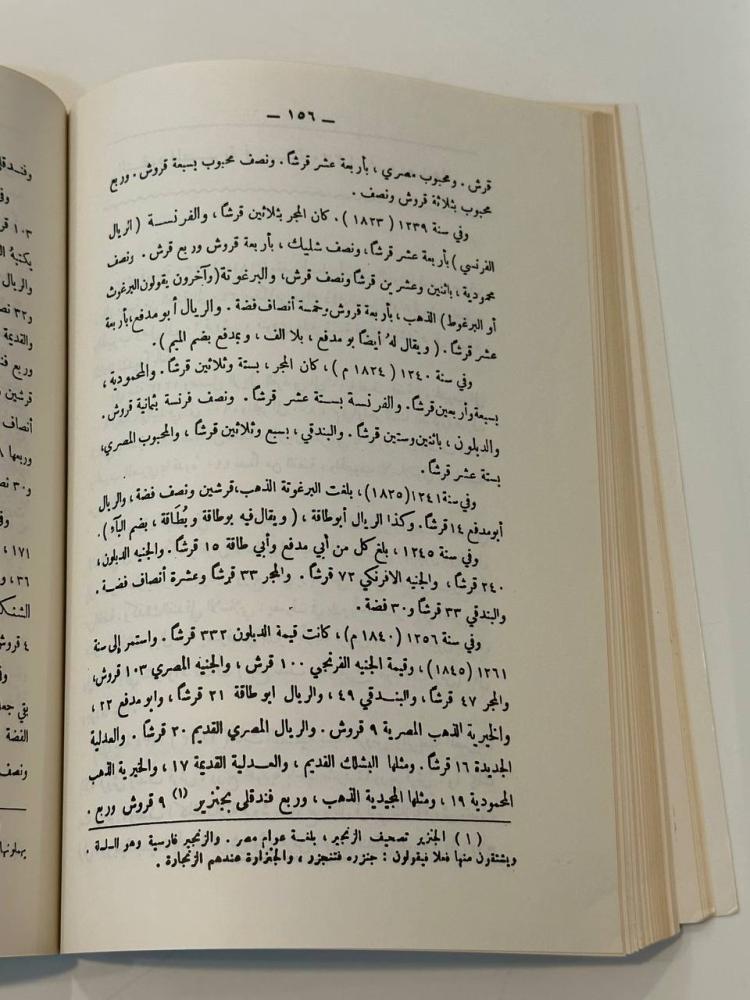 — ١٥٦ —
قرش . ومحبوب مصري ، بأربعة عشر قرشاً . ونصف محبوب بسبعة قروش . وربع
محبوب بثلاثة قروش ونصف .
وفي سنة ١٢٣٩ ( ١٨٢٣ ) . كان المجر بثلاثين قرشاً ، والفرنسة ( الريال
الفرنسي ) بأربعة عشر قرشاً ، ونصف شليك ، بأربعة قروش وربع قرش . ونصف
محمودية ، باثنين وعشرين قرشاً ونصف قرش ، والبرغوتة ( وآخرون يقولون البرغوث
أو البرغوط ) الذهب ، بأربعة قروش وخمسة أنصاف فضة . والريال أبو مدفع ، بأربعة
عشر قرشاً . ( ويقال لهُ أيضاً بو مدفع ، بلا الف ، وبمدفع بضم الميم ) .
وفي سنة ١٢٤٠ ( ١٨٢٤ م ) ، كان المجر ، بستة وثلاثين قرشاً . والمحمودية ،
بسبعة وأربعين قرشاً . والفرنسة بستة عشر قرشاً . ونصف فرنسة بثمانية قروش .
والدبلون ، باثنين وستين قرشاً . والبندقي ، بسبع وثلاثين قرشاً ، والمحبوب المصري ،
بستة عشر قرشاً .
وفي سنة ١٢٤١ (١٨٢٥) ، بلغت البرغوتة الذهب ، قرشين ونصف فضة ، والريال
أبو مدفع ١٤ قرشاً . وكذا الريال أبو طاقة ، ( ويقال فيه بوطاقة و بُطَاقة ، بضم البآء ) .
وفي سنة ١٢٤٥ ، بلغ كل من أبي مدفع وأبي طاقة ١٥ قرشاً . والجنيه الدبلون ،
٢٤٠ قرشاً ، والجنيه الافرنكي ٧٢ قرشاً . والمجر ٣٣ قرشاً وعشرة أنصاف فضة .
والبندقي ٣٣ قرشاً و ٣٠ فضة .
وفي سنة ١٢٥٦ ( ١٨٤٠ م ) ، كانت قيمة الدبلون ٣٣٢ قرشاً . واستمر إلى سنة
١٢٦١ (١٨٤٥) ، وقيمة الجنيه الفرنجي ١٠٠ قرش ، والجنيه المصري ١٠٣ قروش ،
والمجر ٤٧ قرشاً ، والبندقي ٤٩ ، والريال ابو طاقة ٢١ قرشاً ، وابو مدفع ٢٢ ،
والخيرية الذهب المصرية ٩ قروش . والريال المصري القديم ٢٠ قرشاً . والعدلية
الجديدة ١٦ قرشاً . ومثلها البشلك القديم ، والعدلية القديمة ١٧ ، والخيرية الذهب
المحمودية ١٩ ، ومثلها المجيدية الذهب ، وربع فندقلي بجنزير (١) ٩ قروش وربع .
( ١ ) الجنزير تصحيف الزنجير ، بلغة عوام مصر . والزنجير فارسية وهو السلسلة .
ويشتقون منها فعلا فيقولون : جنزره فتجنزر ، والجنزارة عندهم الزنجارة .